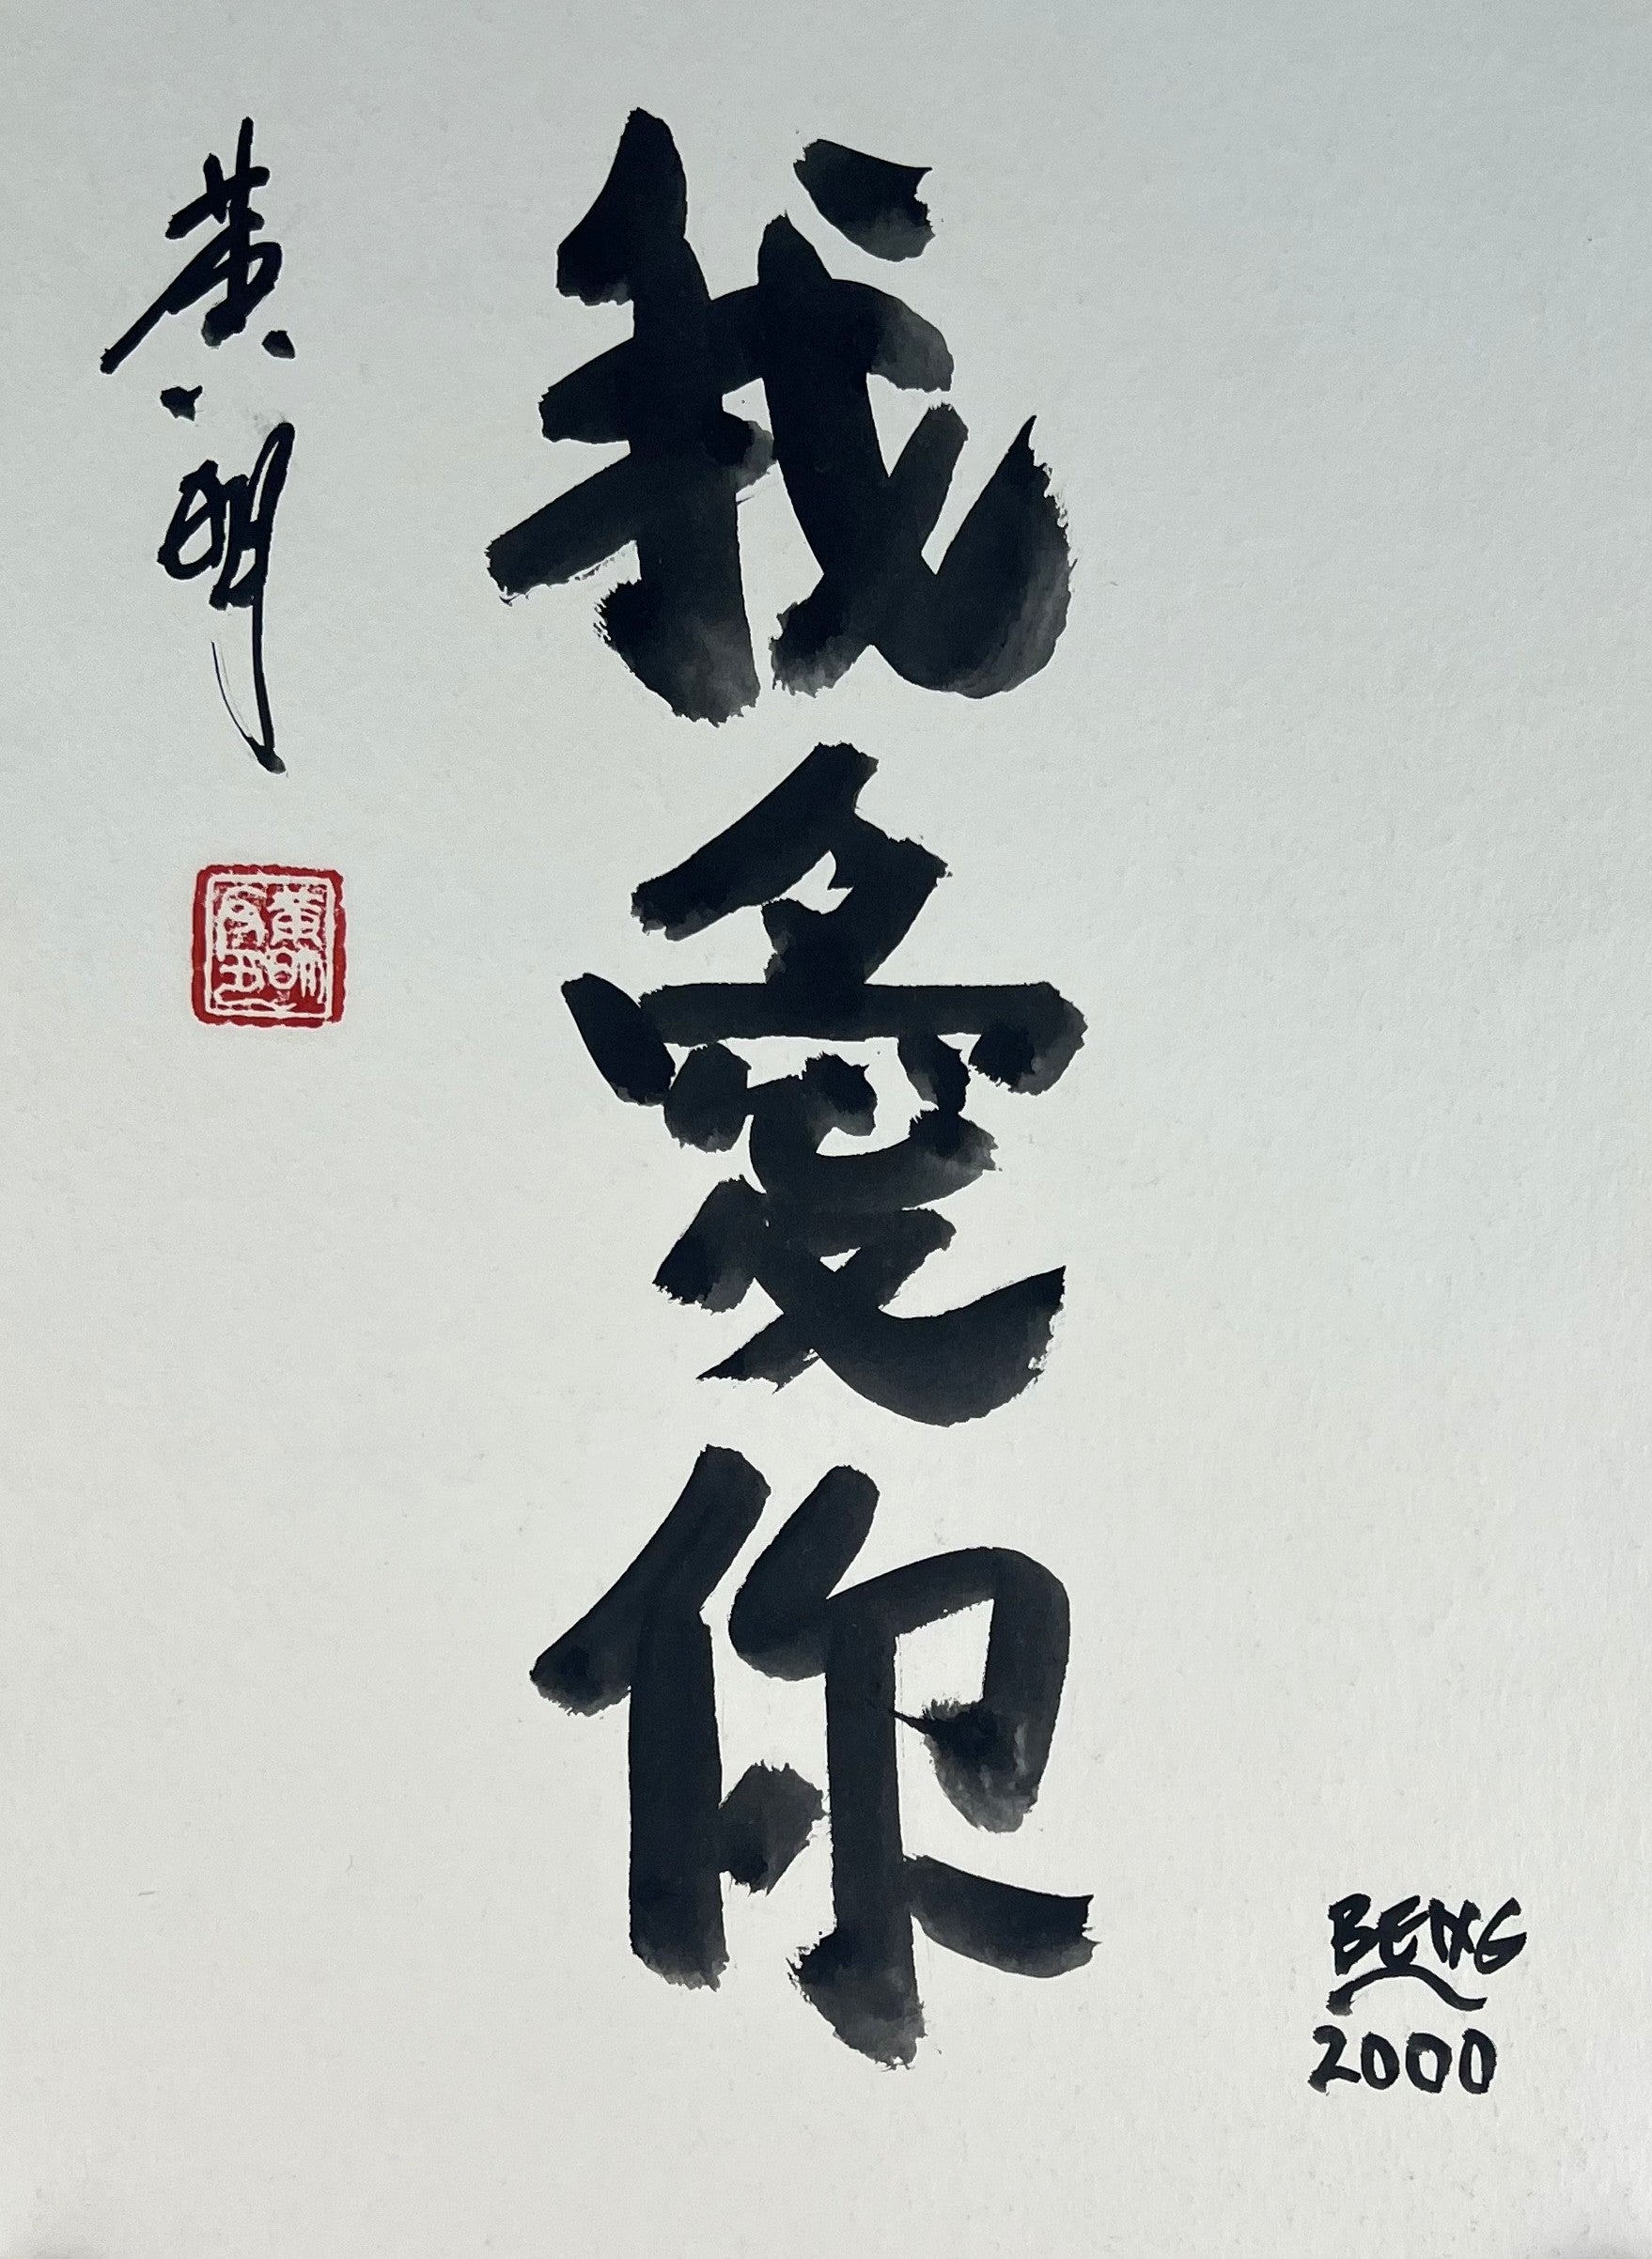 我愛你
黄明
BENG
2000